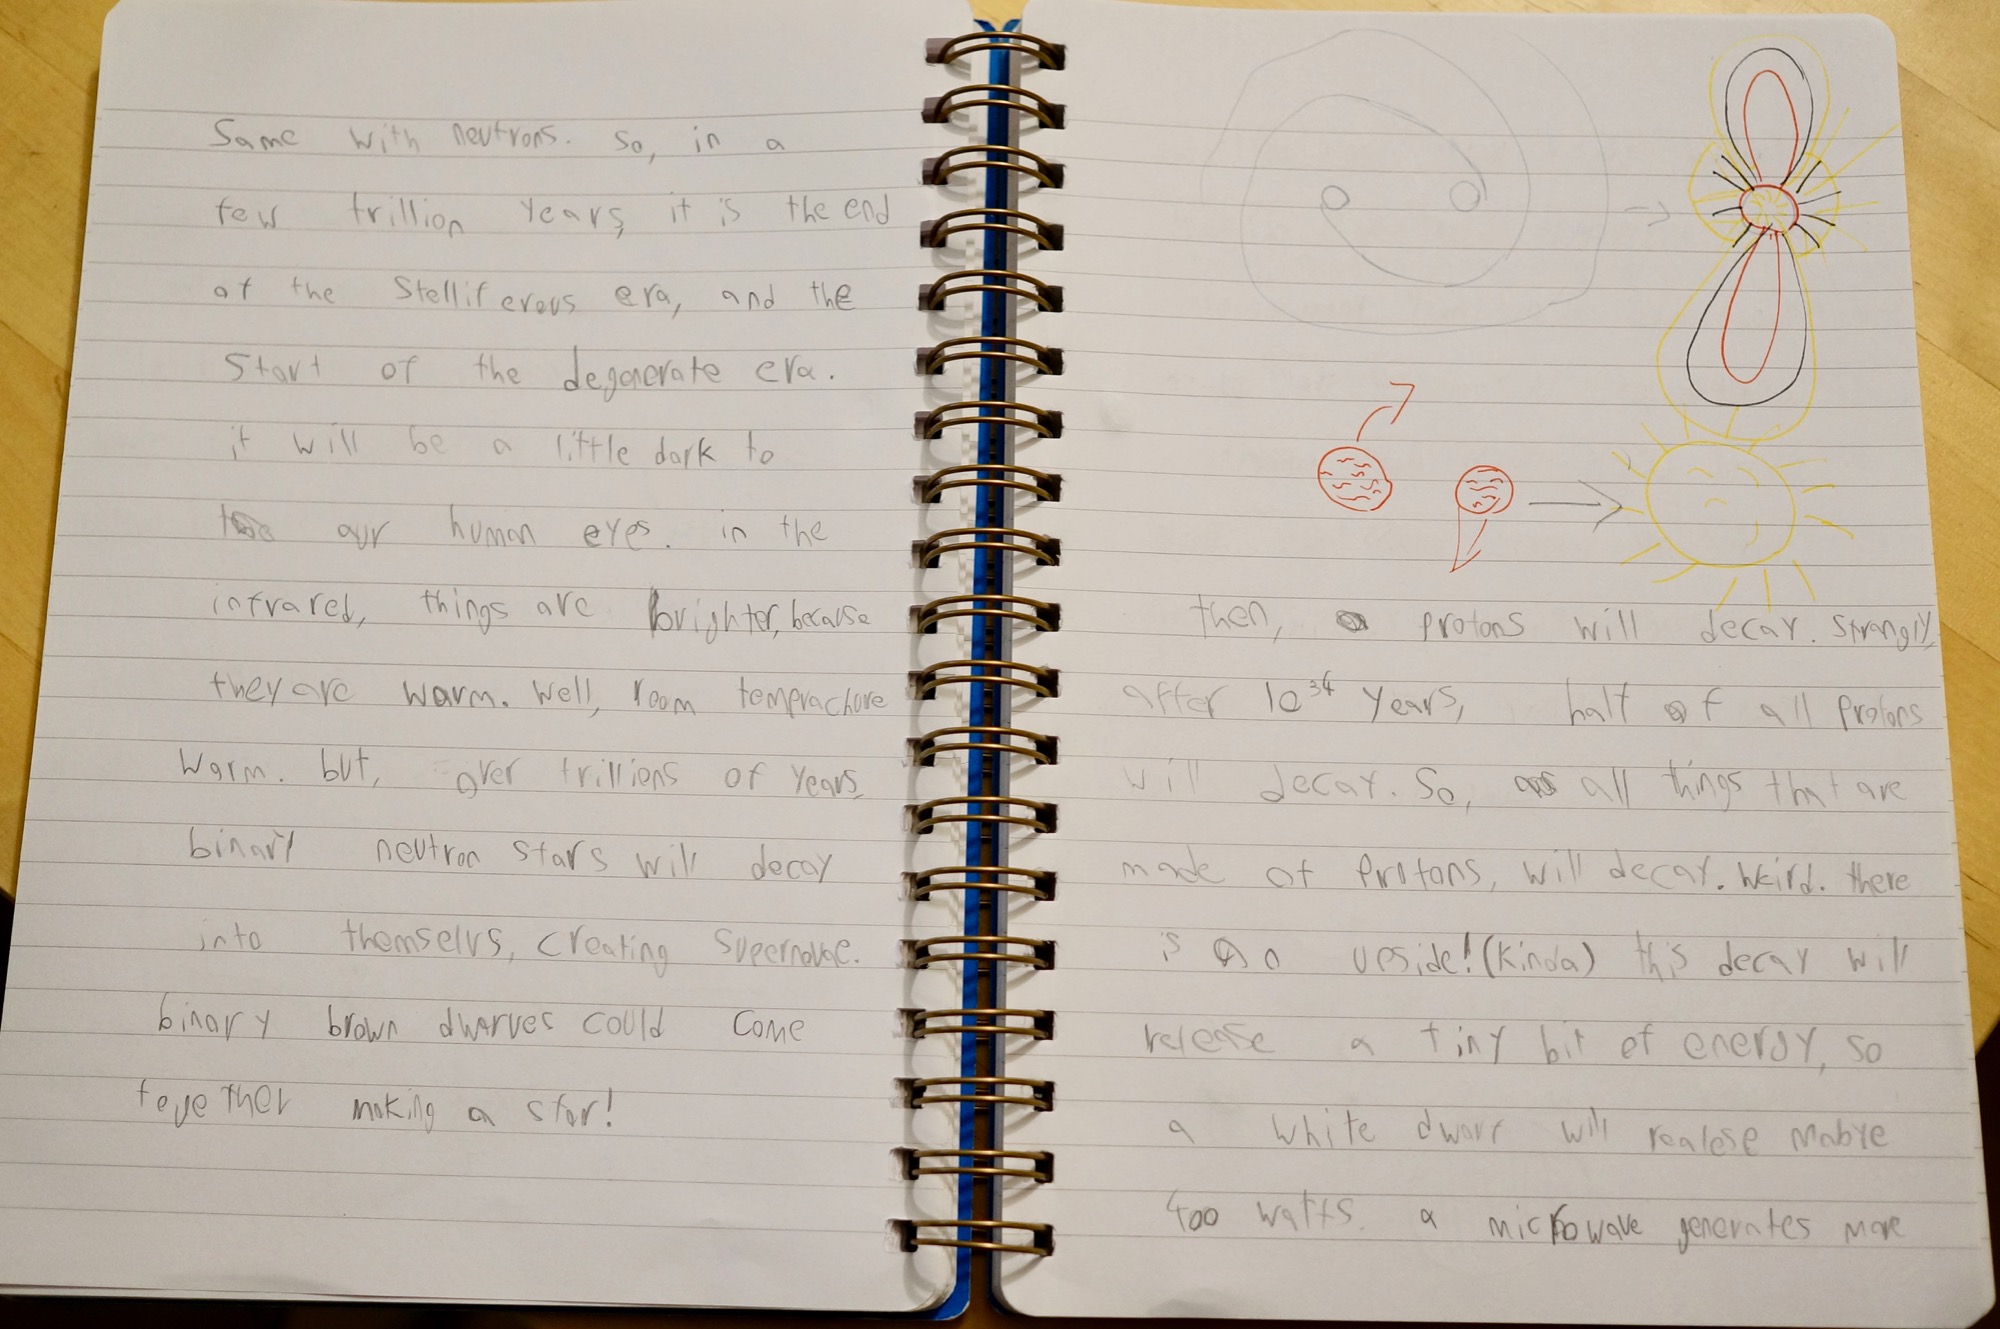 Same with neutrons. So, in a
few trillion years, it is the end
of the Stelliferous era, and the
Start of the degenerate era.
it will be a little dark to
our human eyes. in the
infrared, things are brighter, because
they are warm. Well, room temprachure
warm. but, over trillions of years,
binary neutron stars will decay
into themselvs, creating supernovae.
binary brown dwarves could come
together making a star!
then, protons will decay. Strangly,
after 10³⁴ years, half of all protons
will decay. So, all things that are
made of Protons, will decay. Weird. there
is a upside! (kinda) this decay will
release a tiny bit of energy, so
a white dwarf will realese mabye
400 watts. a microwave generates more